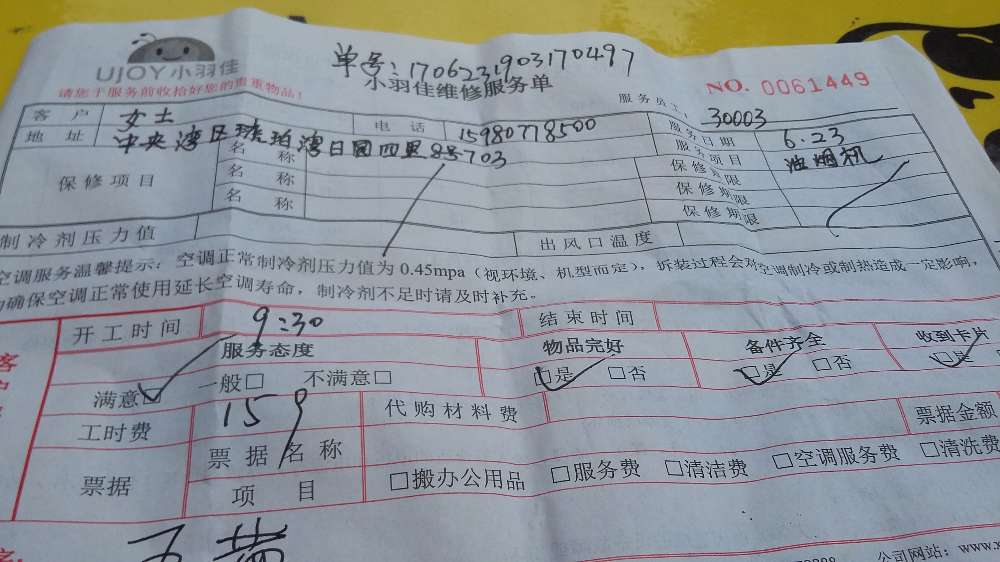 UJOY小羽佳
单号:170623190317​0497
请您于服务前收拾好您的贵重物品!
小羽佳维修服务单
NO. 0061449
服务员工 30003
客户 女士 电话 15980778500 服务日期 6.23
地址 中央湾区琥珀湾日圆四里8号703 服务项目 油烟机
保修项目
名称 保修期限
名称 保修期限
名称 保修期限
制冷剂压力值 出风口温度
空调服务温馨提示:空调正常制冷剂压力值为0.45mpa(视环境、机型而定),拆装过程会对空调制冷或制热造成一定影响,
确保空调正常使用延长空调寿命,制冷剂不足时请及时补充。
开工时间 9:30 结束时间
服务态度 物品完好 备件齐全 收到卡片
满意□ 一般□ 不满意□ □是 □否 □是 □否 □是
工时费 159 代购材料费 票据金额
票据 票据名称 □搬办公用品 □服务费 □清洁费 □空调服务费 □清洗费
项目
公司网站:www.x